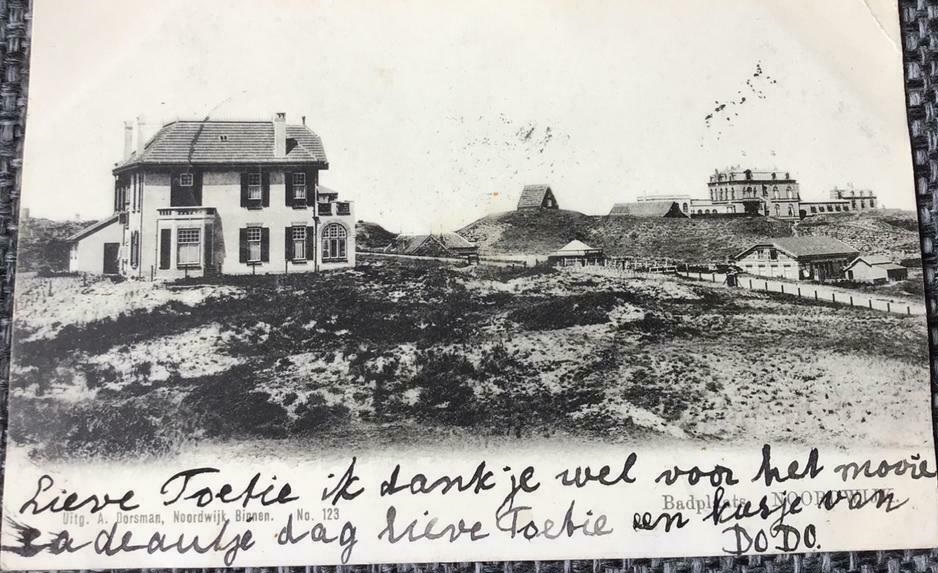 Lieve Toetie ik dank je wel voor het mooie
Badplaats NOORDWIJK
Uitg. A. Dorsman, Noordwijk Binnen. No. 123
cadeautje dag lieve Toetie en kusje van
DODO.